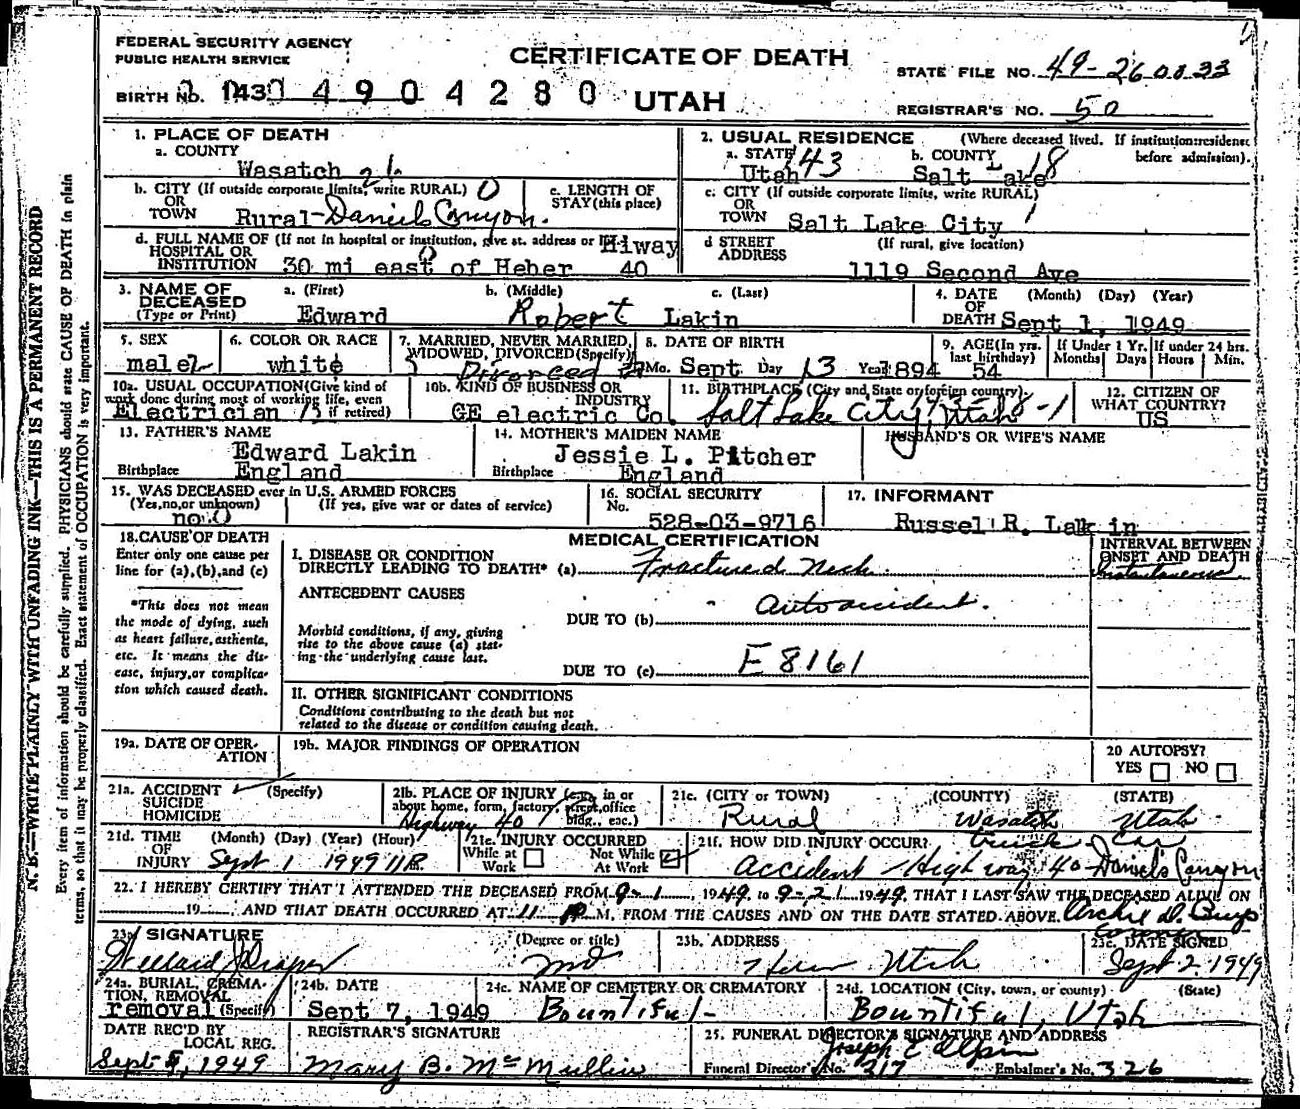 FEDERAL SECURITY AGENCY
PUBLIC HEALTH SERVICE
CERTIFICATE OF DEATH
STATE FILE NO. 49-260033
BIRTH NO. 1430 4904280
UTAH
REGISTRAR'S NO. 50
N. B.—WRITE PLAINLY WITH UNFADING INK—THIS IS A PERMANENT RECORD
Every item of information should be carefully supplied. PHYSICIANS should state CAUSE OF DEATH in plain
terms, so that it may be properly classified. Exact statement of OCCUPATION is very important.
1. PLACE OF DEATH
a. COUNTY
Wasatch 26
2. USUAL RESIDENCE (Where deceased lived. If institution:residence before admission).
a. STATE Utah 43
b. COUNTY Salt Lake 18
b. CITY (If outside corporate limits, write RURAL) 0
OR
TOWN Rural-Daniels Canyon.
c. LENGTH OF
STAY (this place)
c. CITY (If outside corporate limits, write RURAL)
OR
TOWN Salt Lake City 1
d. FULL NAME OF (If not in hospital or institution, give st. address or
HOSPITAL OR
INSTITUTION 30 mi east of Heber Hiway 40
d STREET
ADDRESS
(If rural, give location)
1119 Second Ave
3. NAME OF
DECEASED
(Type or Print)
a. (First) Edward
b. (Middle) Robert
c. (Last) Lakin
4. DATE
OF
DEATH
(Month) (Day) (Year)
Sept 1, 1949
5. SEX
male
6. COLOR OR RACE
white
7. MARRIED, NEVER MARRIED,
WIDOWED, DIVORCED (Specify)
Divorced
8. DATE OF BIRTH
Mo. Sept Day 13 Year 1894
9. AGE (In yrs.
last birthday)
54
If Under 1 Yr.
Months Days
If under 24 hrs.
Hours Min.
10a. USUAL OCCUPATION (Give kind of
work done during most of working life, even
if retired)
Electrician
10b. KIND OF BUSINESS OR
INDUSTRY
GE electric Co.
11. BIRTHPLACE (City and State or foreign country)
Salt Lake City, Utah
12. CITIZEN OF
WHAT COUNTRY?
US
13. FATHER'S NAME
Edward Lakin
Birthplace England
14. MOTHER'S MAIDEN NAME
Jessie L. Pitcher
Birthplace England
HUSBAND'S OR WIFE'S NAME
15. WAS DECEASED ever in U.S. ARMED FORCES
(Yes,no,or unknown) (If yes, give war or dates of service)
no 0
16. SOCIAL SECURITY
No.
528-03-9716
17. INFORMANT
Russel R. Lakin
18. CAUSE OF DEATH
Enter only one cause per
line for (a),(b),and (c)
*This does not mean
the mode of dying, such
as heart failure, asthenia,
etc. It means the dis-
ease, injury, or complica-
tion which caused death.
MEDICAL CERTIFICATION
INTERVAL BETWEEN
ONSET AND DEATH
Instantaneous
I. DISEASE OR CONDITION
DIRECTLY LEADING TO DEATH* (a) Fractured Neck.
ANTECEDENT CAUSES
DUE TO (b) Auto accident.
Morbid conditions, if any, giving
rise to the above cause (a) stat-
ing the underlying cause last.
DUE TO (c) E8161
II. OTHER SIGNIFICANT CONDITIONS
Conditions contributing to the death but not
related to the disease or condition causing death.
19a. DATE OF OPER-
ATION
19b. MAJOR FINDINGS OF OPERATION
20 AUTOPSY?
YES NO
21a. ACCIDENT (Specify)
SUICIDE
HOMICIDE
21b. PLACE OF INJURY (e.g., in or
about home, form, factory, street, office
bldg., eac.)
Highway 40
21c. (CITY or TOWN) (COUNTY) (STATE)
Rural Wasatch Utah
21d. TIME
OF
INJURY
(Month) (Day) (Year) (Hour)
Sept 1 1949 11P.
21e. INJURY OCCURRED
While at Work
Not While At Work
21f. HOW DID INJURY OCCUR? truck car
Accident Highway 40 Daniel's Canyon
22. I HEREBY CERTIFY THAT I ATTENDED THE DECEASED FROM 9-1, 1949, to 9-21, 1949, THAT I LAST SAW THE DECEASED ALIVE ON
19, AND THAT DEATH OCCURRED AT 11 P M, FROM THE CAUSES AND ON THE DATE STATED ABOVE. Archie D. Buys
Coroner
23a SIGNATURE (Degree or title)
Willard Draper MD
23b. ADDRESS
Heber Utah
23c. DATE SIGNED
Sept 2. 1949
24a. BURIAL, CREMA-
TION, REMOVAL
removal (Specify)
24b. DATE
Sept 7, 1949
24c. NAME OF CEMETERY OR CREMATORY
Bountiful
24d. LOCATION (City, town, or county) (State)
Bountiful, Utah
DATE REC'D BY
LOCAL REG.
Sept 5, 1949
REGISTRAR'S SIGNATURE
Mary B. McMullin
25. FUNERAL DIRECTOR'S SIGNATURE AND ADDRESS
Joseph E
Funeral Director's No. 217 Embalmer's No. 326